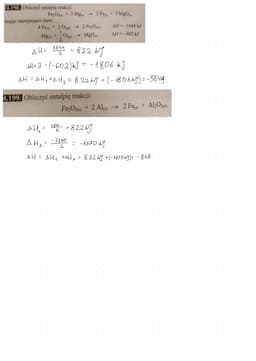 4.198. Obliczyć entalpię reakcji:
Fe₂O₃(s) + 3 Mg(s) → 2 Fe(s) + 3 MgO(s)
mając następujące dane:
4 Fe(s) + 3 O₂(g) → 2 Fe₂O₃(s) ΔH = -1644 kJ
Mg(s) + 1/2 O₂(g) → MgO(s) ΔH = -602 kJ
ΔH = 1644/2 = 822 kJ
ΔH = 3 · (-602) kJ = -1806 kJ
ΔH = ΔH₁ + ΔH₂ = 822 kJ + (-1806 kJ) = -984 kJ
4.199. Obliczyć entalpię reakcji:
Fe₂O₃(s) + 2 Al(s) → 2 Fe(s) + Al₂O₃(s)
ΔH₁ = /2 = 822 kJ
ΔH₂ = /2 = -1670 kJ
ΔH = ΔH₁ + ΔH₂ = 822 kJ + (-1670 kJ) = -848